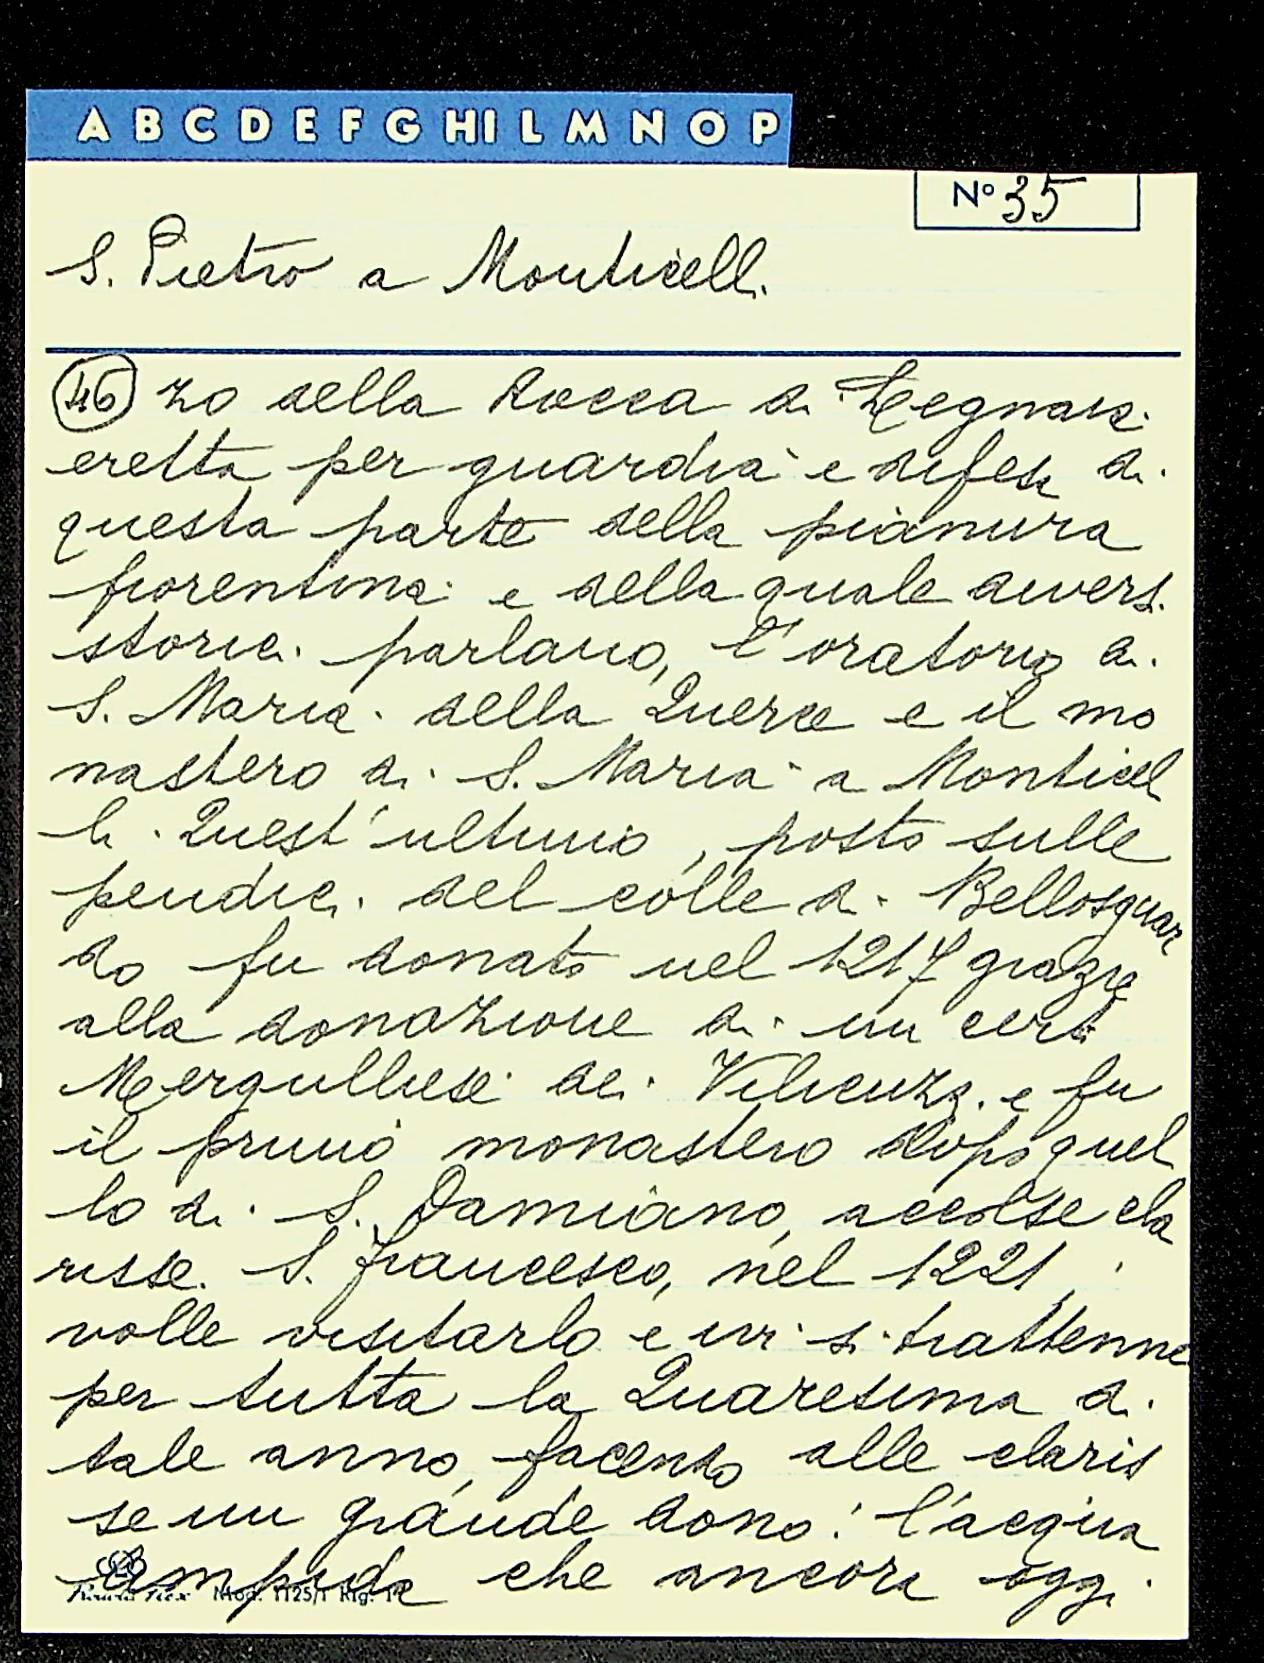 A B C D E F G HI L M N O P
Nº 35
S. Pietro a Monticelli
46 zo della Rocca di Legnaia
eretta per guardia e difesa di
questa parte della pianura
fiorentina e della quale diversi
storici parlano, l'oratorio di
S. Maria della Querce e il mo
nastero di S. Maria a Monticel
li. Quest'ultimo, posto sulle
pendici del colle di Bellosguar
do fu donato nel 1217 grazie
alla donazione di un certo
dei e fu
il primo monastero dopo quel
lo di S. Damiano, accolse cla
risse. S. Francesco, nel 1221,
volle visitarlo e ivi si trattenne
per tutta la Quaresima di
tale anno, facendo alle claris
se un grande dono: l'acqua
limpida che ancora oggi
Mod. 1125/1 Rig. 1P